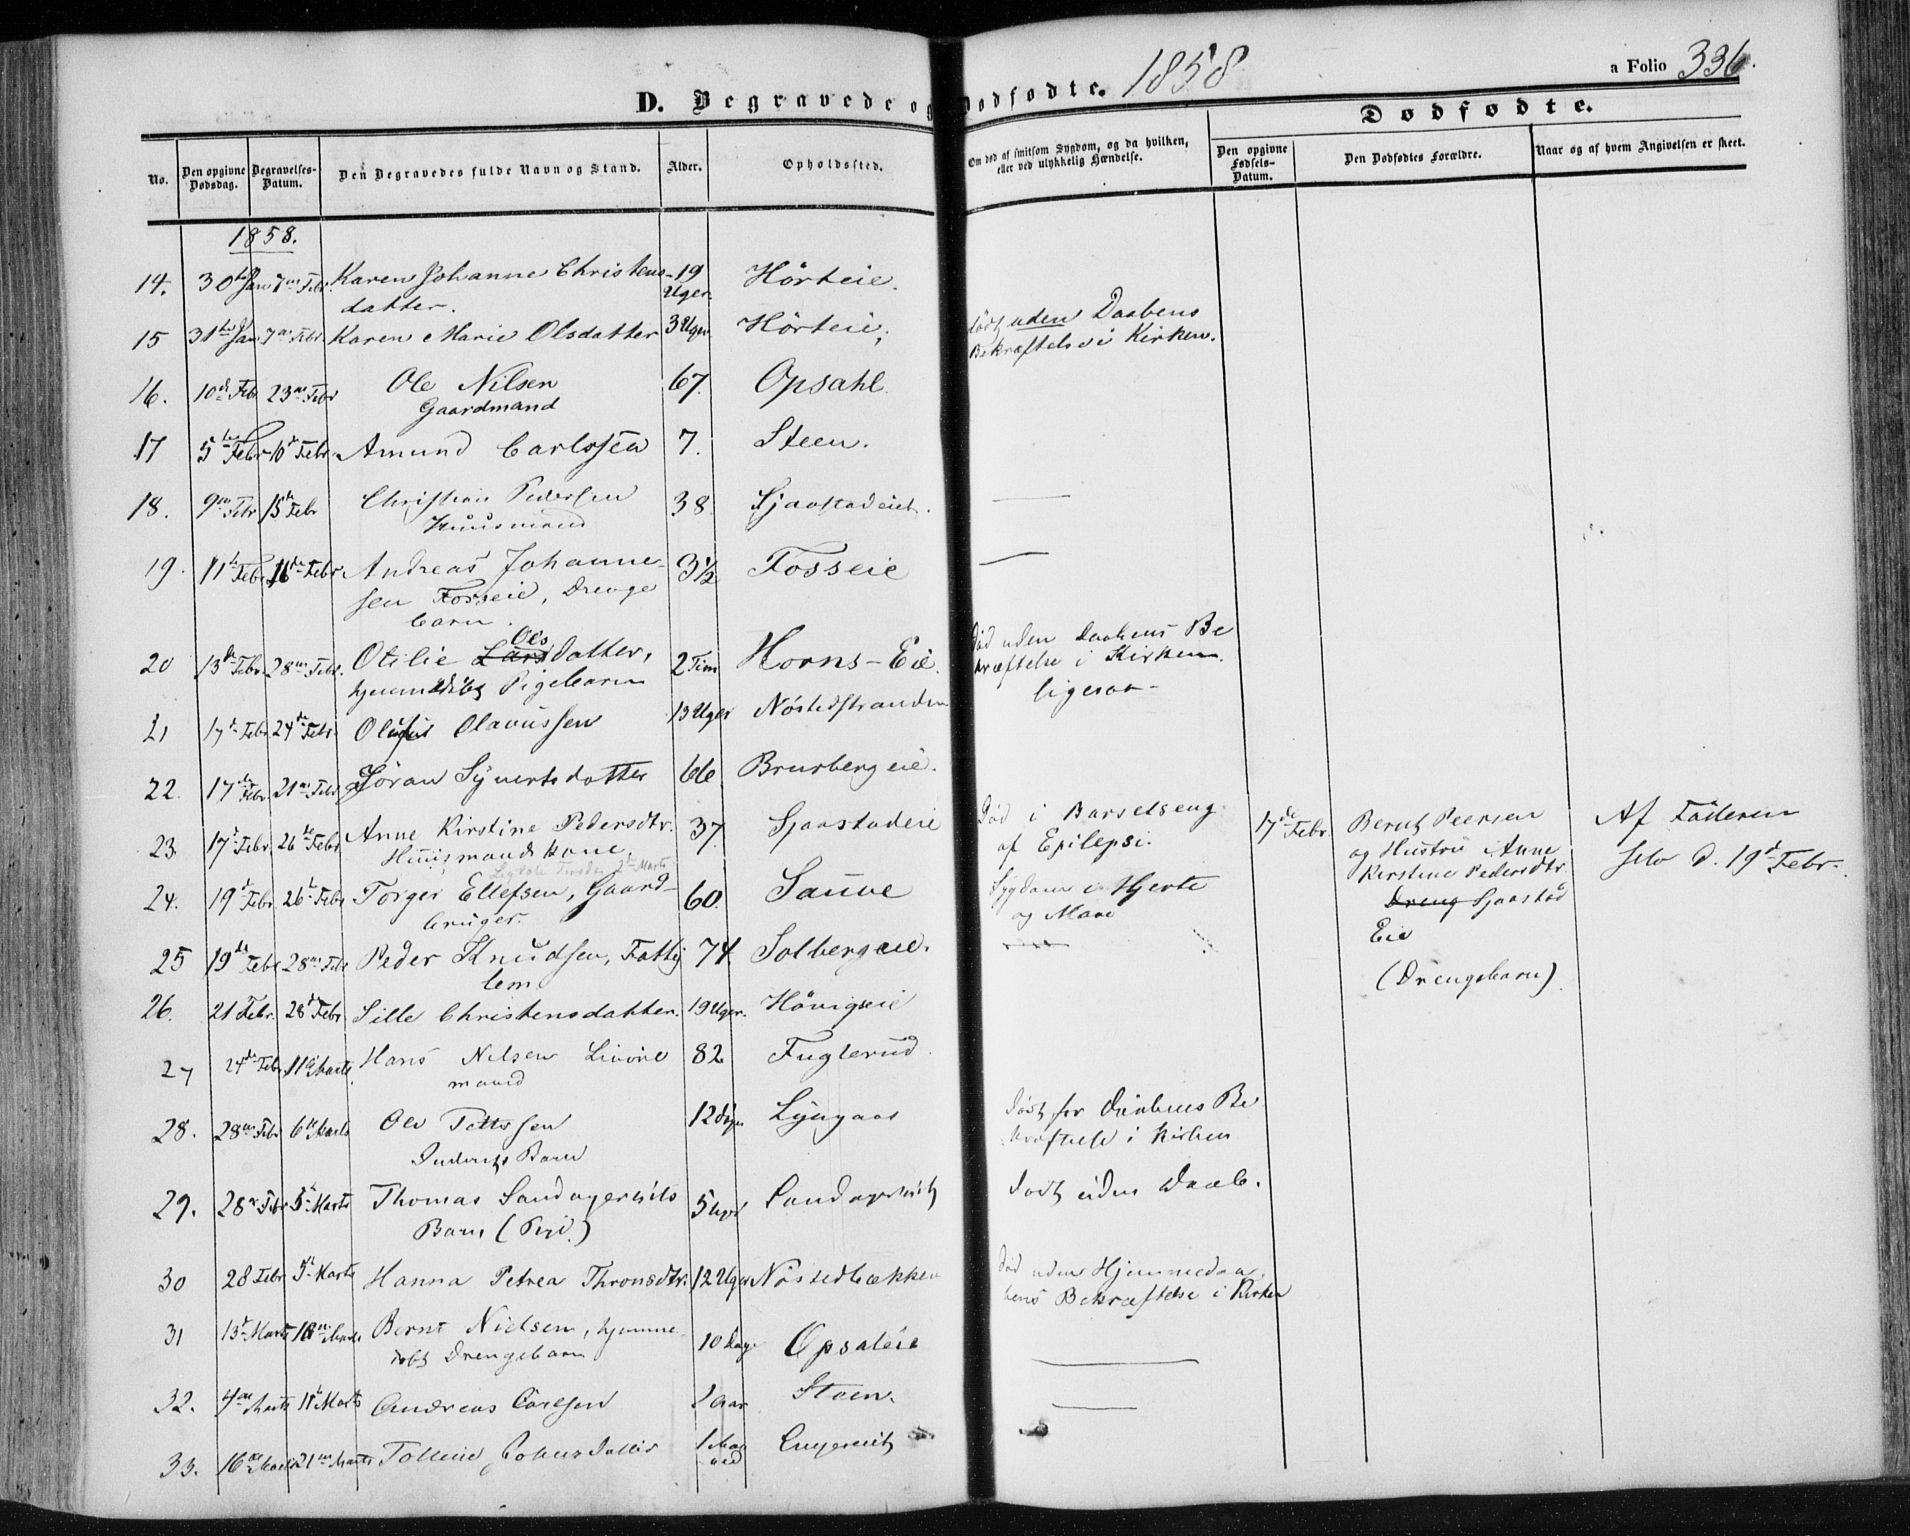 D. Begravede og Dødfødte. 1858
a Folio 336.
No.
Den opgivne Dødsdag.
Begravelses-Datum.
Den Begravedes fulde Navn og Stand.
Alder.
Opholdssted.
Om død af smitsom Sygdom, og da hvilken, eller ved ulykkelig Hændelse.
Dødfødte.
Den opgivne Fødsels-Datum.
Den Dødfødtes Forældre.
Naar og af hvem Angivelsen er skeet.
1858.
14. 30te Jan 7de Febr Karen Johanne Christens- 19 Uger Hörteie.
datter.
15 31te Jan 7de Febr Karen Marie Olsdatter 3 Uger Hörteie, födt uden Daabens
Bekræftelse i Kirken.
16. 10de Feb 23de Febr Ole Nilsen 67. Opsahl.
Gaardmand
17 5te Febr 10de Febr Amund Carlssen 7. Steen.
18. 9de Febr 15de Febr Christian Pedersen 38 Sjaastadeiet.
Huusmand
19. 11te Febr 16de Febr Andreas Johanne- 3½ Fosseie
sen Fosseie, Drenge
barn.
20 13de Febr 28de Febr. Otilie Lars Ols datter, 2 Tim Horns-Eie. Död uden Daabens Be
hjemmedöbt Pigebarn kræftelse i Kirken.
21 17de Febr 24de Febr. Olavussen 13 Uger Nöstedstranden ligesaa-
22. 17de Febr. 21de Febr Jöran Syvertsdatter 66 Brurbergeie.
23. 17de Febr. 26de Febr Anne Kirstine Pedersdtr. 37. Sjaastadeie Död i Barselseng
Huusmandskone. af Epilepsi.
17de Febr. Bernt Peersen
og Hustru Anne
Kirstine Pedersdtr.
Dreng Sjaastad
Eie
(Drengebarn).
Af Faderen
selv d. 19de Febr.
24. 19de Febr. 26de Febr Torger Ellefsen, Gaard- 60. Saue Sygdom i Hjerte
bruger. og Mave
25 19de Febr 28de Febr Peder Knudsen, Fattig 74 Solbergeie.
lem
26. 21 Febr. 28de Febr Sille Christensdatter. 19 Uger. Hövigseie
27 24de Febr. 11te Marts Hans Nelsen 82 Fuglerud.
mand
28. 28de Febr 6te Marts Ole 12 Lyngaas födt för Daabens Be
Barn kræftelse i Kirken
29. 28de Febr 5te Marts Thomas 5 födt uden Daab.
Barn (Pige)
30 28 Febr 5te Marts Hanna Petrea Thronsdtr. 12 Uger Nöstedbækken Död uden Hjemmedaa-
bens Bekræftelse i Kirken
31 13de Marts 18de Marts Bernt Nielsen, hjemme- 10 Dage Opsaleie
döbt Drengebarn
32. 4de Marts 11te Marts Andreas Carlsen 2 Aar Steen.
33. 16de Marts 21de Marts 1 Maa
ned